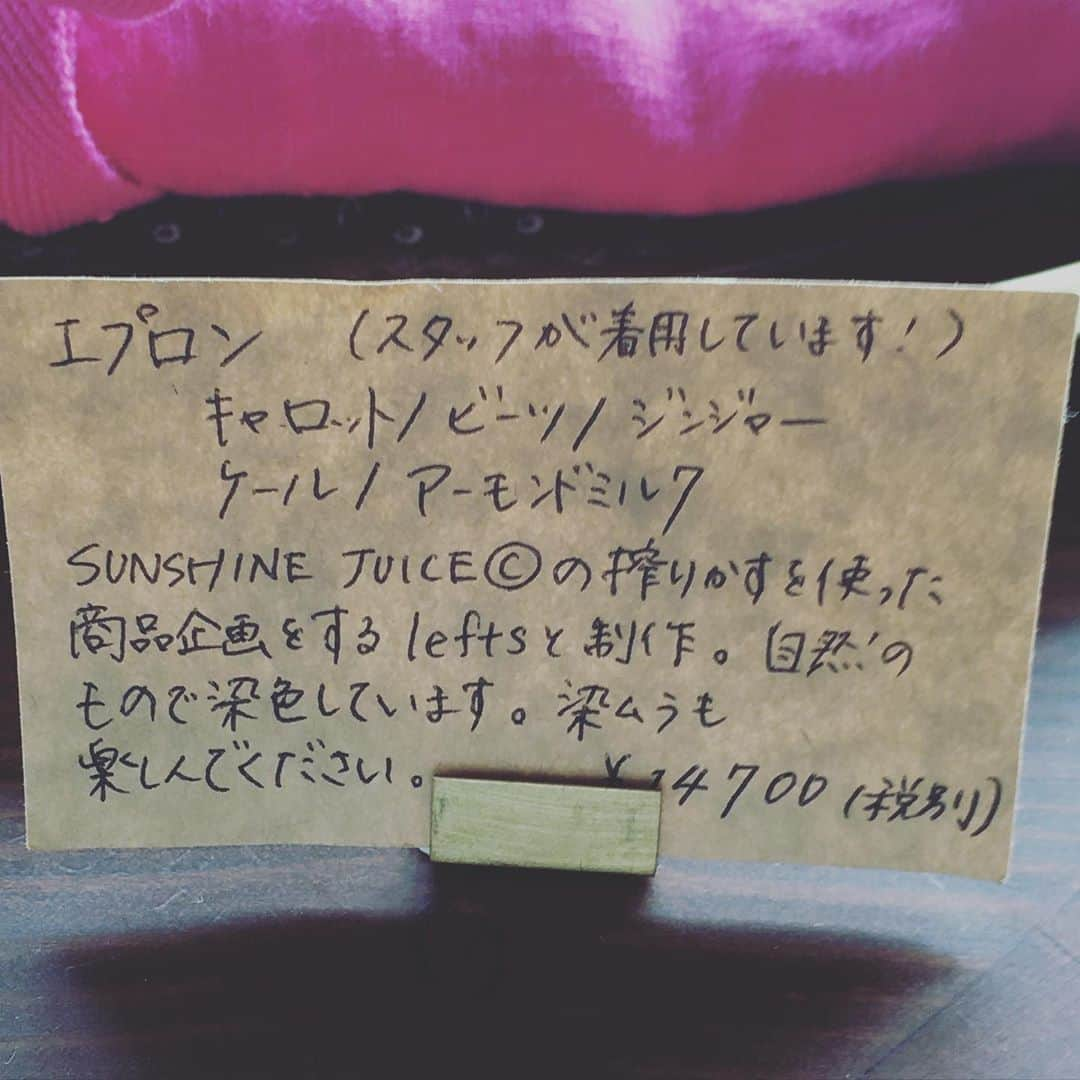 エプロン (スタッフが着用しています!)
キャロット/ビーツ/ジンジャー
ケール/アーモンドミルク
SUNSHINE JUICE©の搾りかすを使った
商品企画をするleftsと制作。自然の
もので染色しています。染ムラも
楽しんでください。
(税別)